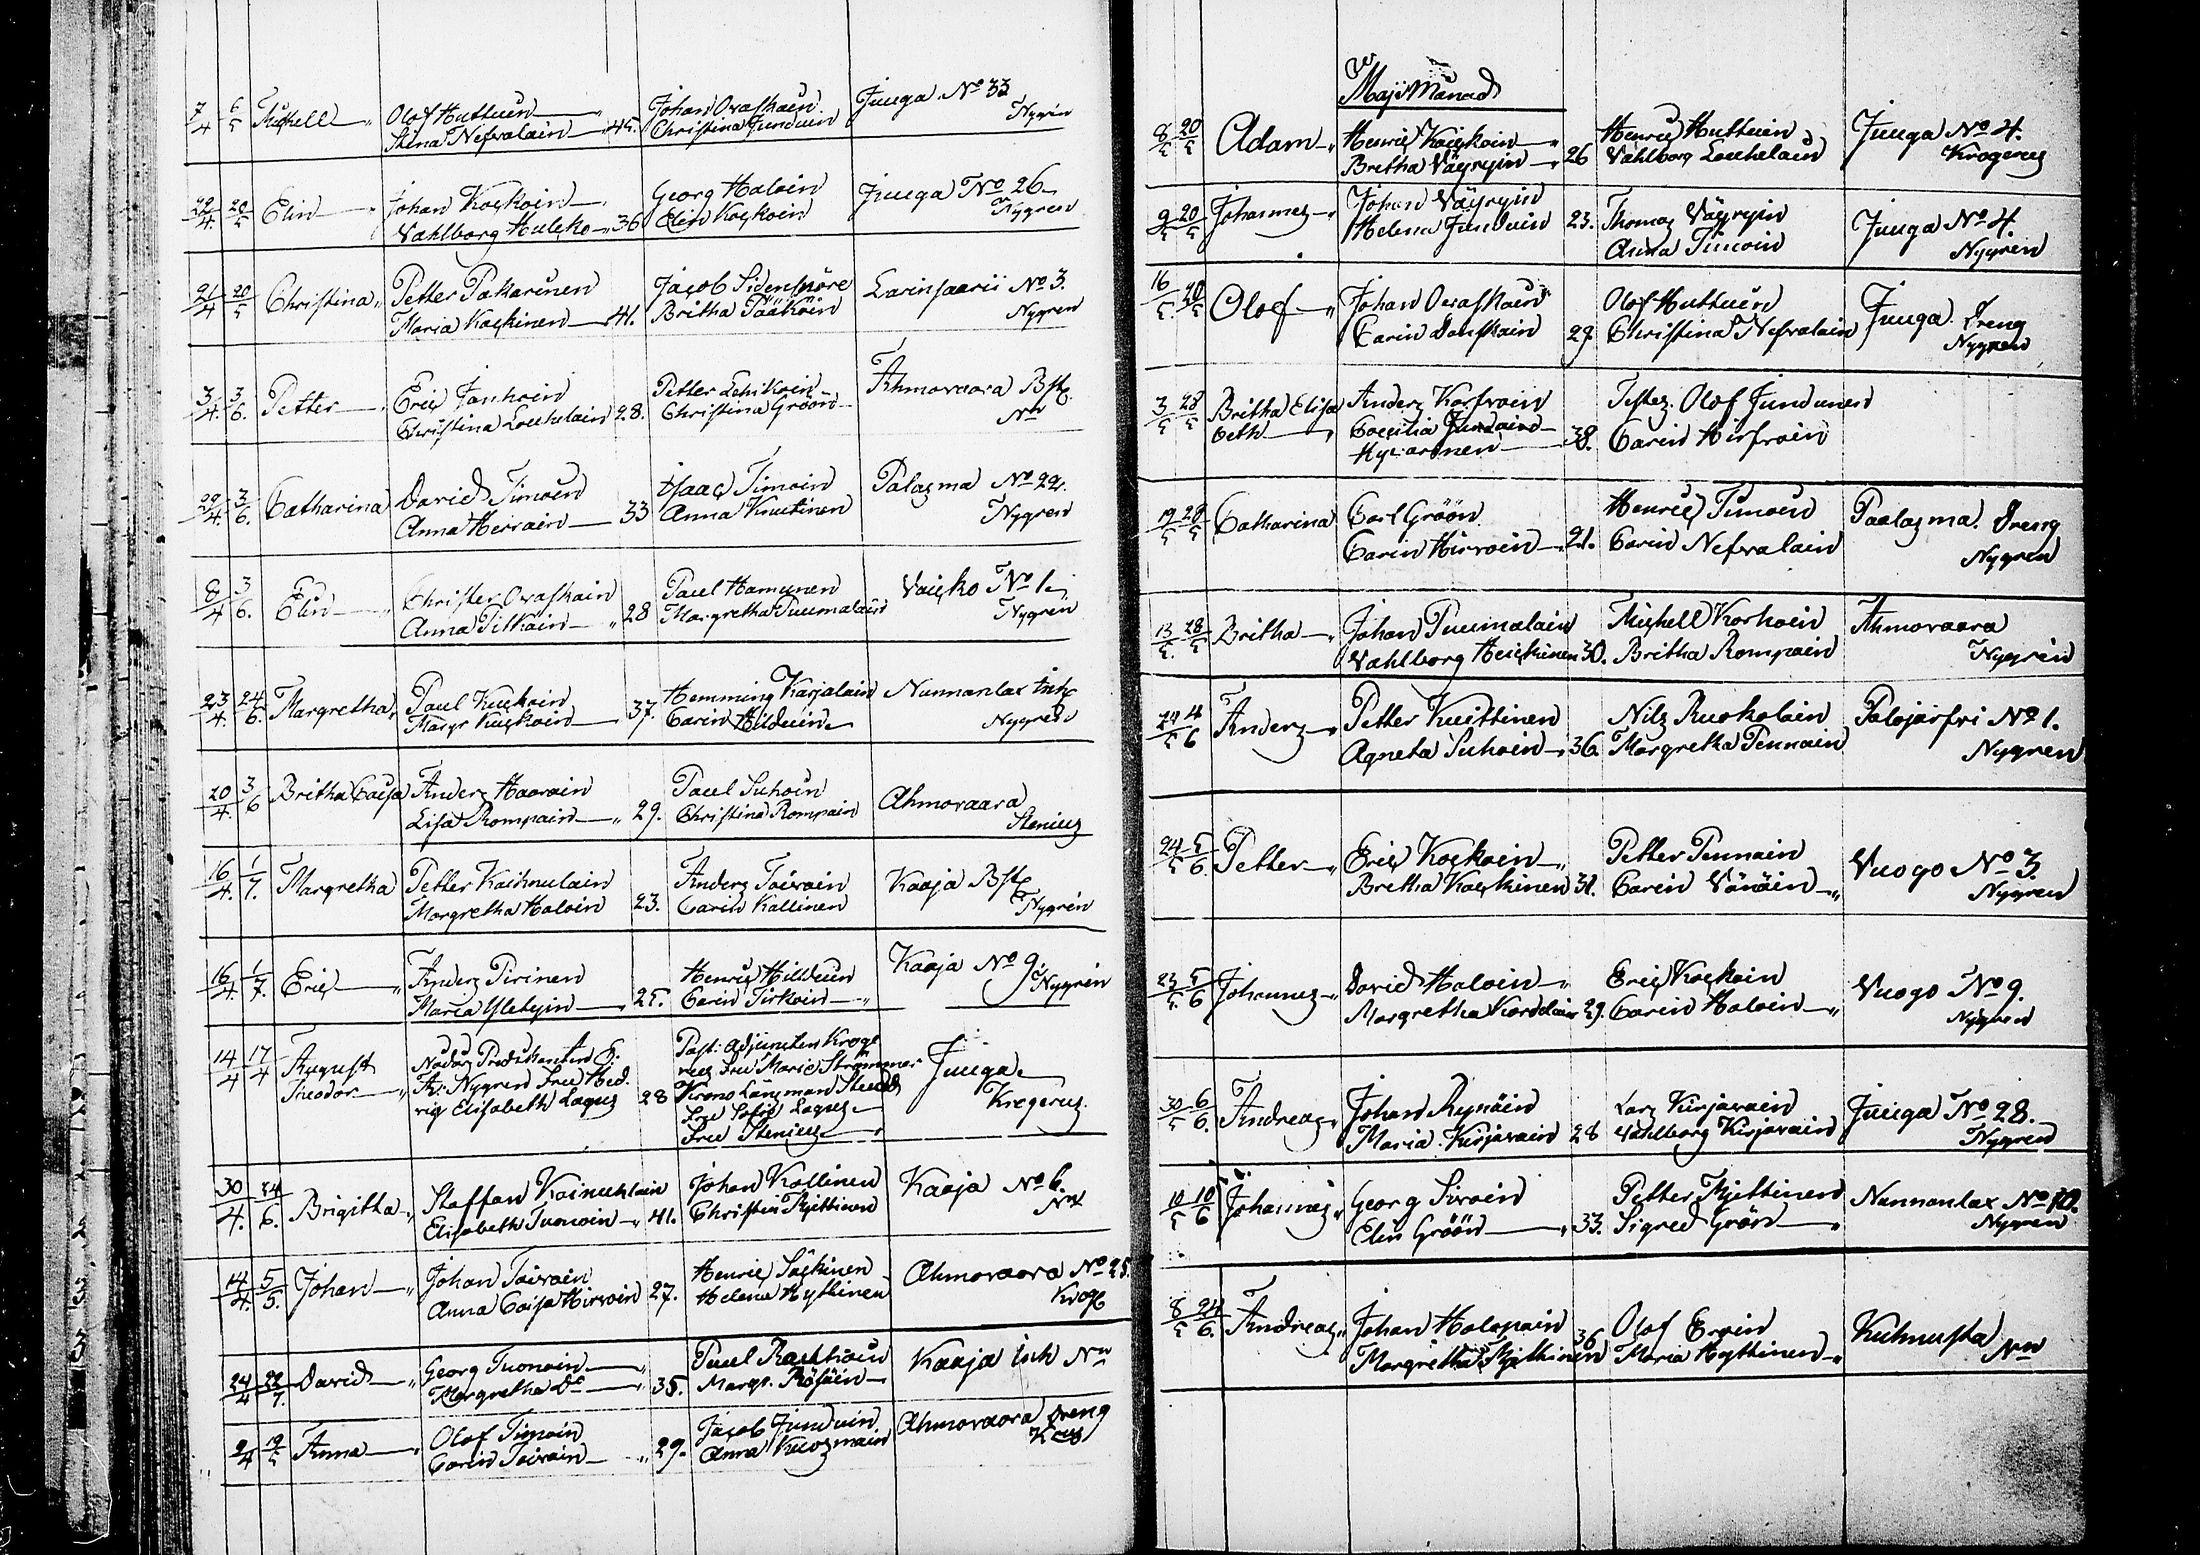 7/4 6/5 Michell Olof Huttuin Stina Nefvalain 45. Johan Ovaskain Christina Junduin Juuga No 33 Nygrén
22/4. 20/5 Elin Johan Koskoin Vahlborg Hulsko 36 Georg Haloin Elin Koskoin Juuga No 26 Nygren
21/4 20/5 Christina Petter Pakarinen Maria Kaskinen 41. Jacob Sidensnöre Britha Pääköin Larinsaari No 3. Nygren
3/4. 3/6. Petter Eric Janhoin Christina Louhelain 28. Petter Lehikoin Christina Gröön Ahmovaara Bst. Nn
29/4. 3/6. Catharina David Timoin Anna Heirain 33 Isaac Timoin Anna Knutinen Palasma No 22. Nygren
8/4 3/6. Elin Christer Ovaskain Anna Pitkäin 28 Paul Hamunen Margretha Puumalain Vaisko No 1. Nygrén
23/4. 24/6. Margretha Paul Kuskoin Margr Kuskoin 37. Hemming Karjalain Carin Hilduin Nunnanlax Inh. Nygren
20/4. 3/6 Britha Caisa Anders Haarain Lisa Rompain 29. Paul Suhoin Christina Rompain Ahmovaara Stenius
16/4. 1/7. Margretha Petter Kaihnulain Margretha Haloin 23. Anders Toivain Carin Kallinen Kaaja Bst. Nygrén
16/4. 1/7. Eric Anders Pirinen Maria Yletyin 25. Henric Hilduin Carin Tirkoin Kaaja No 9. Nygrén
14/4 17/4 August Theodor Nådårs Predikanten E: A: Nygren Fru Hed. vig Elisabeth Lagus 28 Past: Adjuncten Kroge rus Fru Marie Strömmer Krono Länsman Stenius Fru Sofie Lagus Fru Stenius Juuga Krogerus
30/4. 24/6. Brigitha Staffan Kainuhlain Elisabeth Tuonoin 41. Johan Kallinen Christin Kjettinen Kaaja No 6. Nn
14/4. 5/5. Johan Johan Toivain Anna Caisa Hirvoin 27. Henric Säskinen Helena Hyttinen Ahmovaara No 25. Krog
24/4 22/7. David Georg Tuonoin Margretha Do 35. Paul Raskhoin Margr. Röfäin Kaaja Inh Nn
2/4 19/5 Anna Olof Timoin Carin Toivain 29. Jacob Junduin Anna Kuosmain Ahmovaara Dreng Krus
Maji Månad
8/5 20/5 Adam Henric Koiskoin Bretha Väyryin 26 Henric Huttuin Vahlborg Louhelain Juuga No 4. Krogerus
9/5 20/5 Johannes Johan Väyryin Helena Junduin 23. Thomas Väyryin Anna Timoin Juuga No 4. Nygren
16/5. 20/5 Olof Johan Ovaskain Carin Danskain 29 Olof Huttuin Christina Nefvalain Juuga Dreng Nygren
3/5 28/5 Britha Elisa beth Anders Korfvoin Caecilia 38. Testes. Olof Jundunen Carin Hirfvoin
19/5 28/5 Catharina Carl Gröön Carin Hirvoin 21. Henric Timoin Carin Nefvalain Paalasma Dreng Nygren
13/5. 28/5 Britha Johan Puumalain Vahlborg Heiskinen 30. Michell Korhoin Britha Rompain Ahmovaara Nygrén
24/5 4/6 Anders Petter Kuittinen Agneta Suhoin 36. Nils Ruokolain Margretha Pennain Palojärfvi No 1. Nygren
24/5 5/6 Petter Eric Koskoin Bretha Kaskinen 31. Petter Pennain Carin Vänäin Vuogo No 3. Nygren
23/5. 5/6 Johannes David Haloin Margretha Kordelain 29. Eric Koskoin Carin Haloin Vuogo No 9. Nygren
30/5 6/6. Andreas Johan Rynäin Maria Kirjavain 28 Lars Kirjavain Vahlborg Kirjavain Juuga No 28. Nygren
10/5 10/6 Johannes Georg Sivoin Elin Gröön 33. Petter Kjettinen Sigred Grön Nunnanlax No 10. Nygren
8/5 24/6. Andreas Johan Halopain Margretha Kjettinen 36 Olof Ervin Maria Hyttinen Kuhnusta Nn